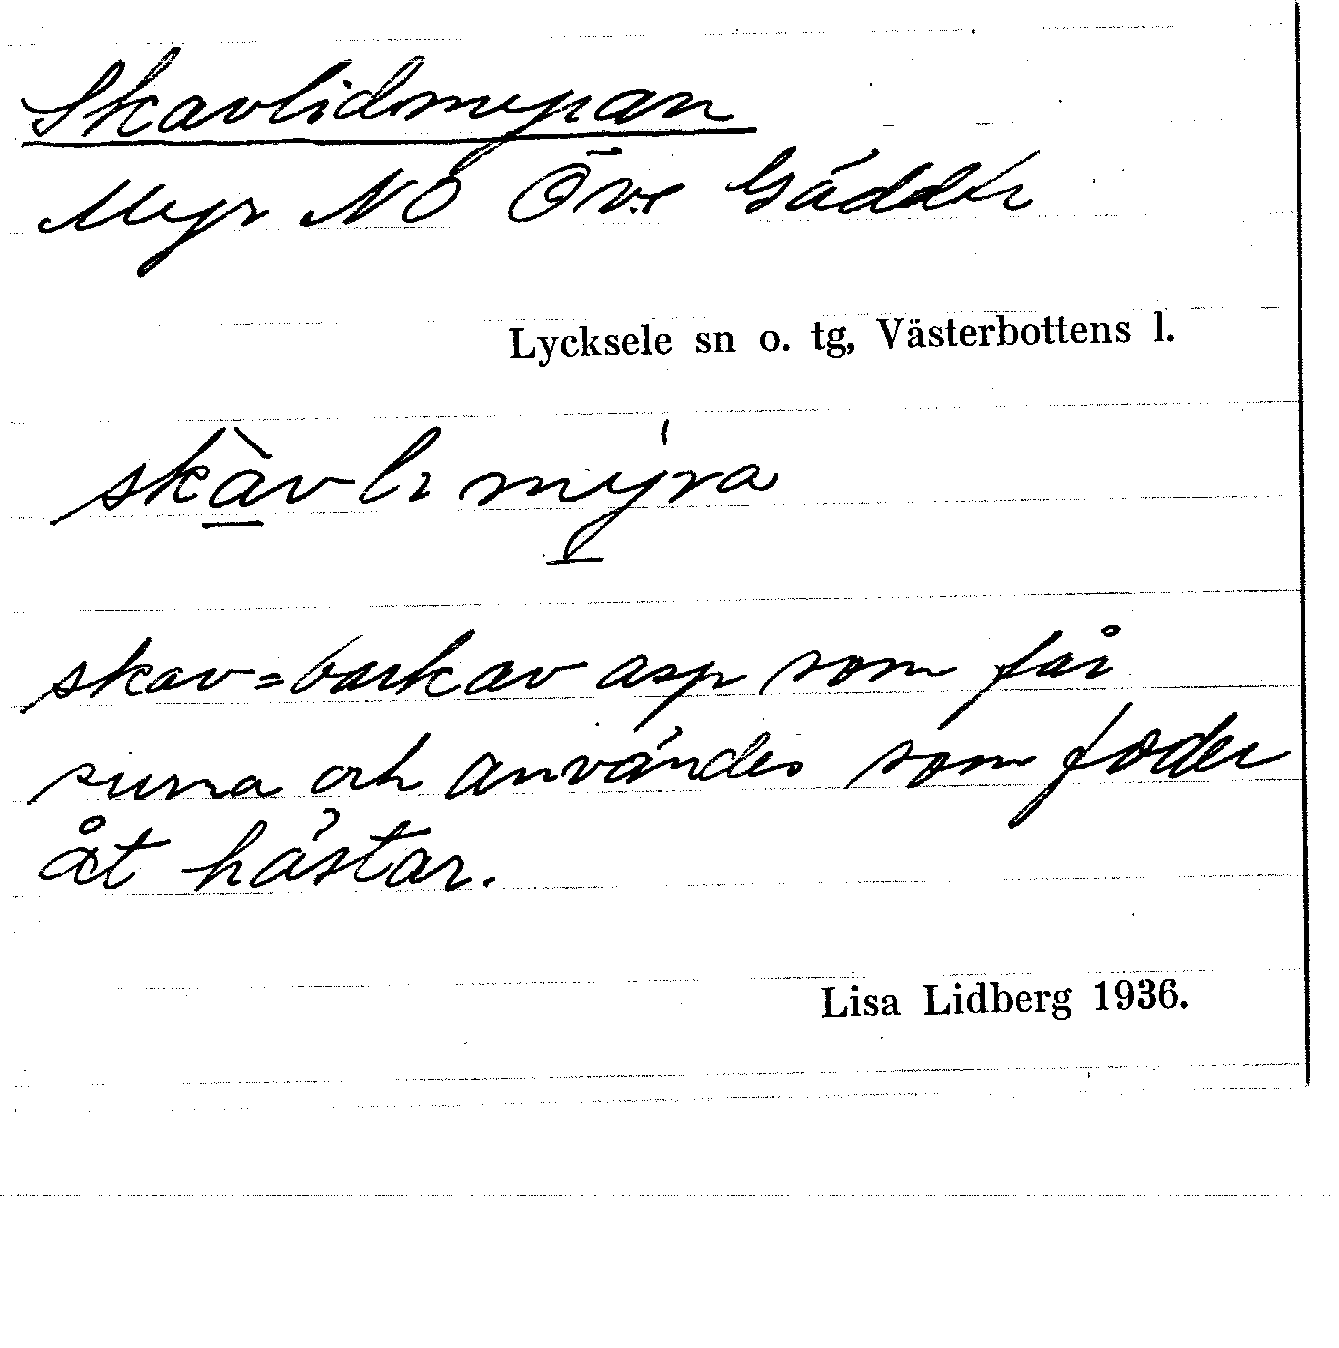 Skavlidmyran
Myr NO Övre Gäddtr
Lycksele sn o. tg, Västerbottens l.
skàvlımỳra
skav=bark av asp som får
surna och användes som foder
åt hästar.
Lisa Lidberg 1936.